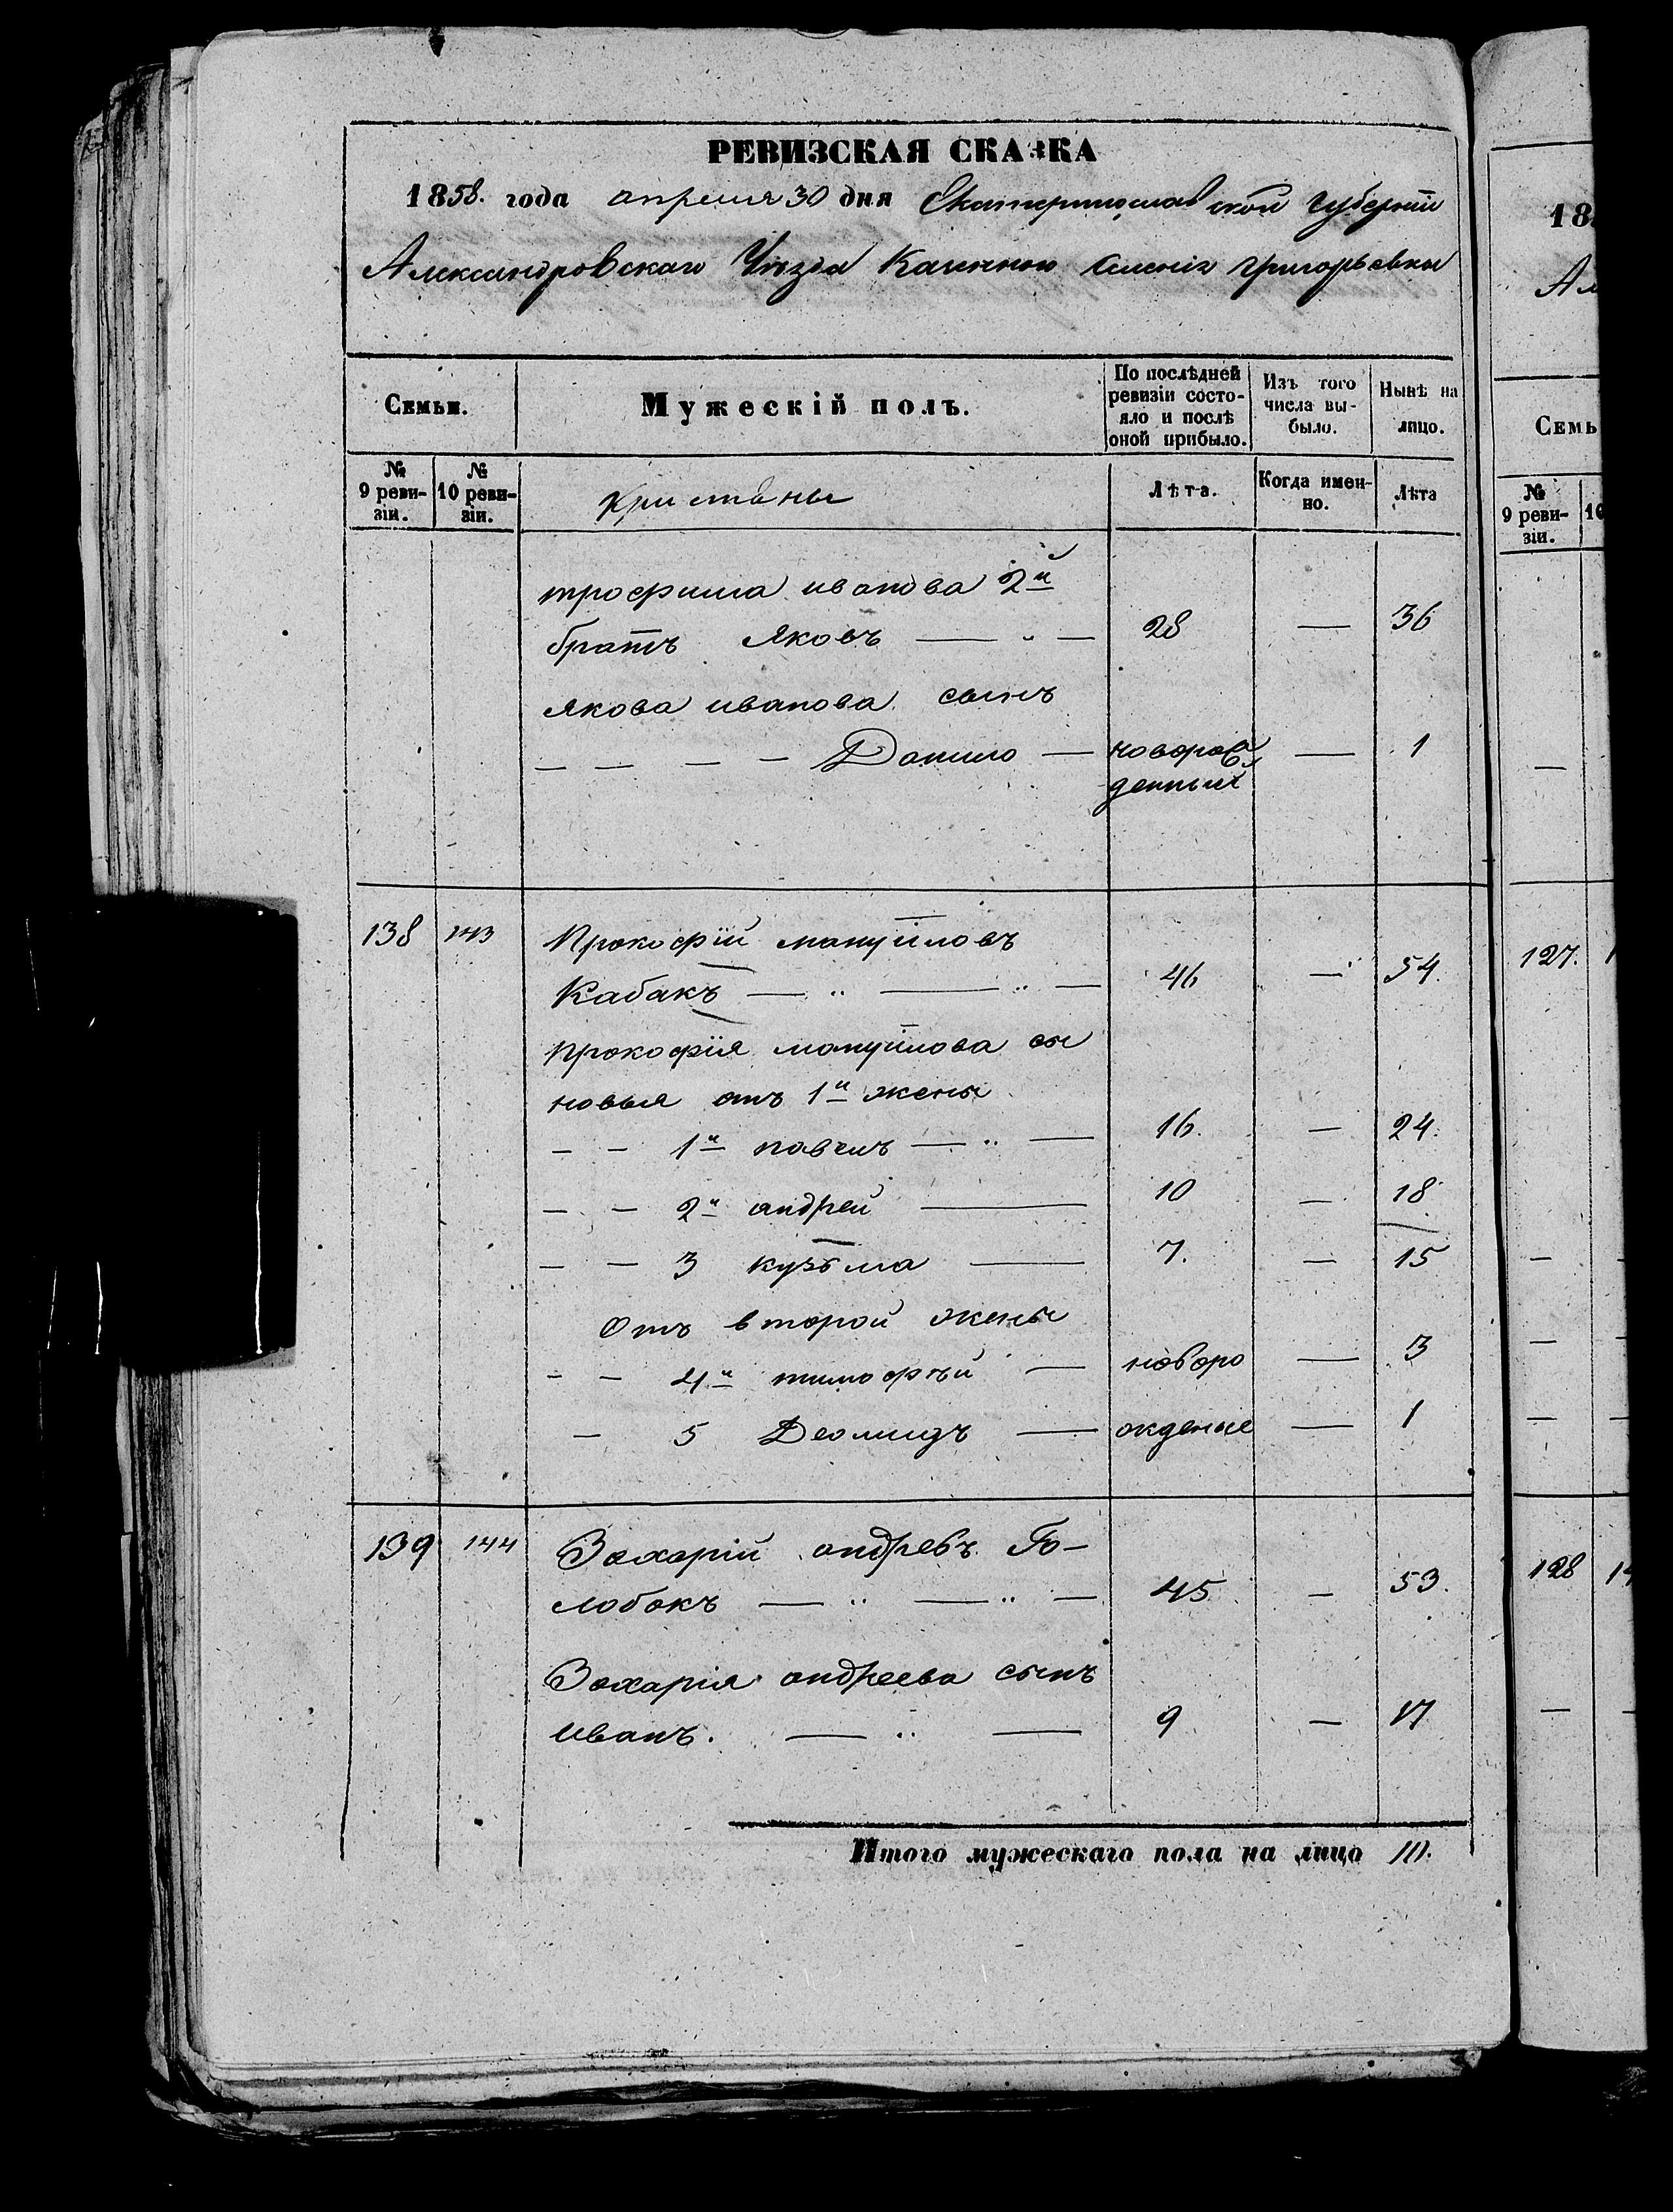 РЕВИЗСКАЯ СКАЗКА
1858. года апреля 30 дня Екатеринославской губернїи
Александровскаго Уѣзда Казенного селенія григорьевки
Семьи.
Мужескій полъ.
По послѣдней ревизіи состояло и послѣ оной прибыло.
Изъ того числа выбыло.
Нынѣ на лицо.
№ 9 ревизіи.
№ 10 ревизіи.
Лѣта.
Когда именно.
Лѣта
трофима иванова 2й
братъ Яковъ — „ — 28 — 36
якова иванова сынъ
— — — — Данило — новорож — 1
денный
138 143 Прокофїй мануйловъ
Кабакъ — „ — „ — 46 — 54.
Прокофїя мануйлова сы
новья отъ 1й жены
— — 1й павелъ — „ — 16. — 24.
— — 2й андрей — 10 — 18.
— — 3 кузьма — 7. — 15
Отъ второй жены
— — 4й тимофѣй — новоро — 3
— 5 Деомидъ — жденые — 1
139 144 Захарїй андревъ Го-
лобокъ — „ — „ — 45 — 53.
Захарія андреева сынъ
иванъ. — „ — 9 — 17
Итого мужескаго пола на лицо 10.
18
Ам
Семь
№ 9 ревизіи.
10
127.
128 14